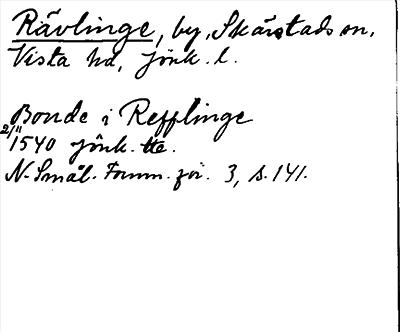 Rävlinge, by, Skärstads sn,
Vista hd, Jönk. l.
Bonde i Refflinge
2/11 1540 Jönk. tte.
N. Smål. Fornm. för. 3, s. 141.